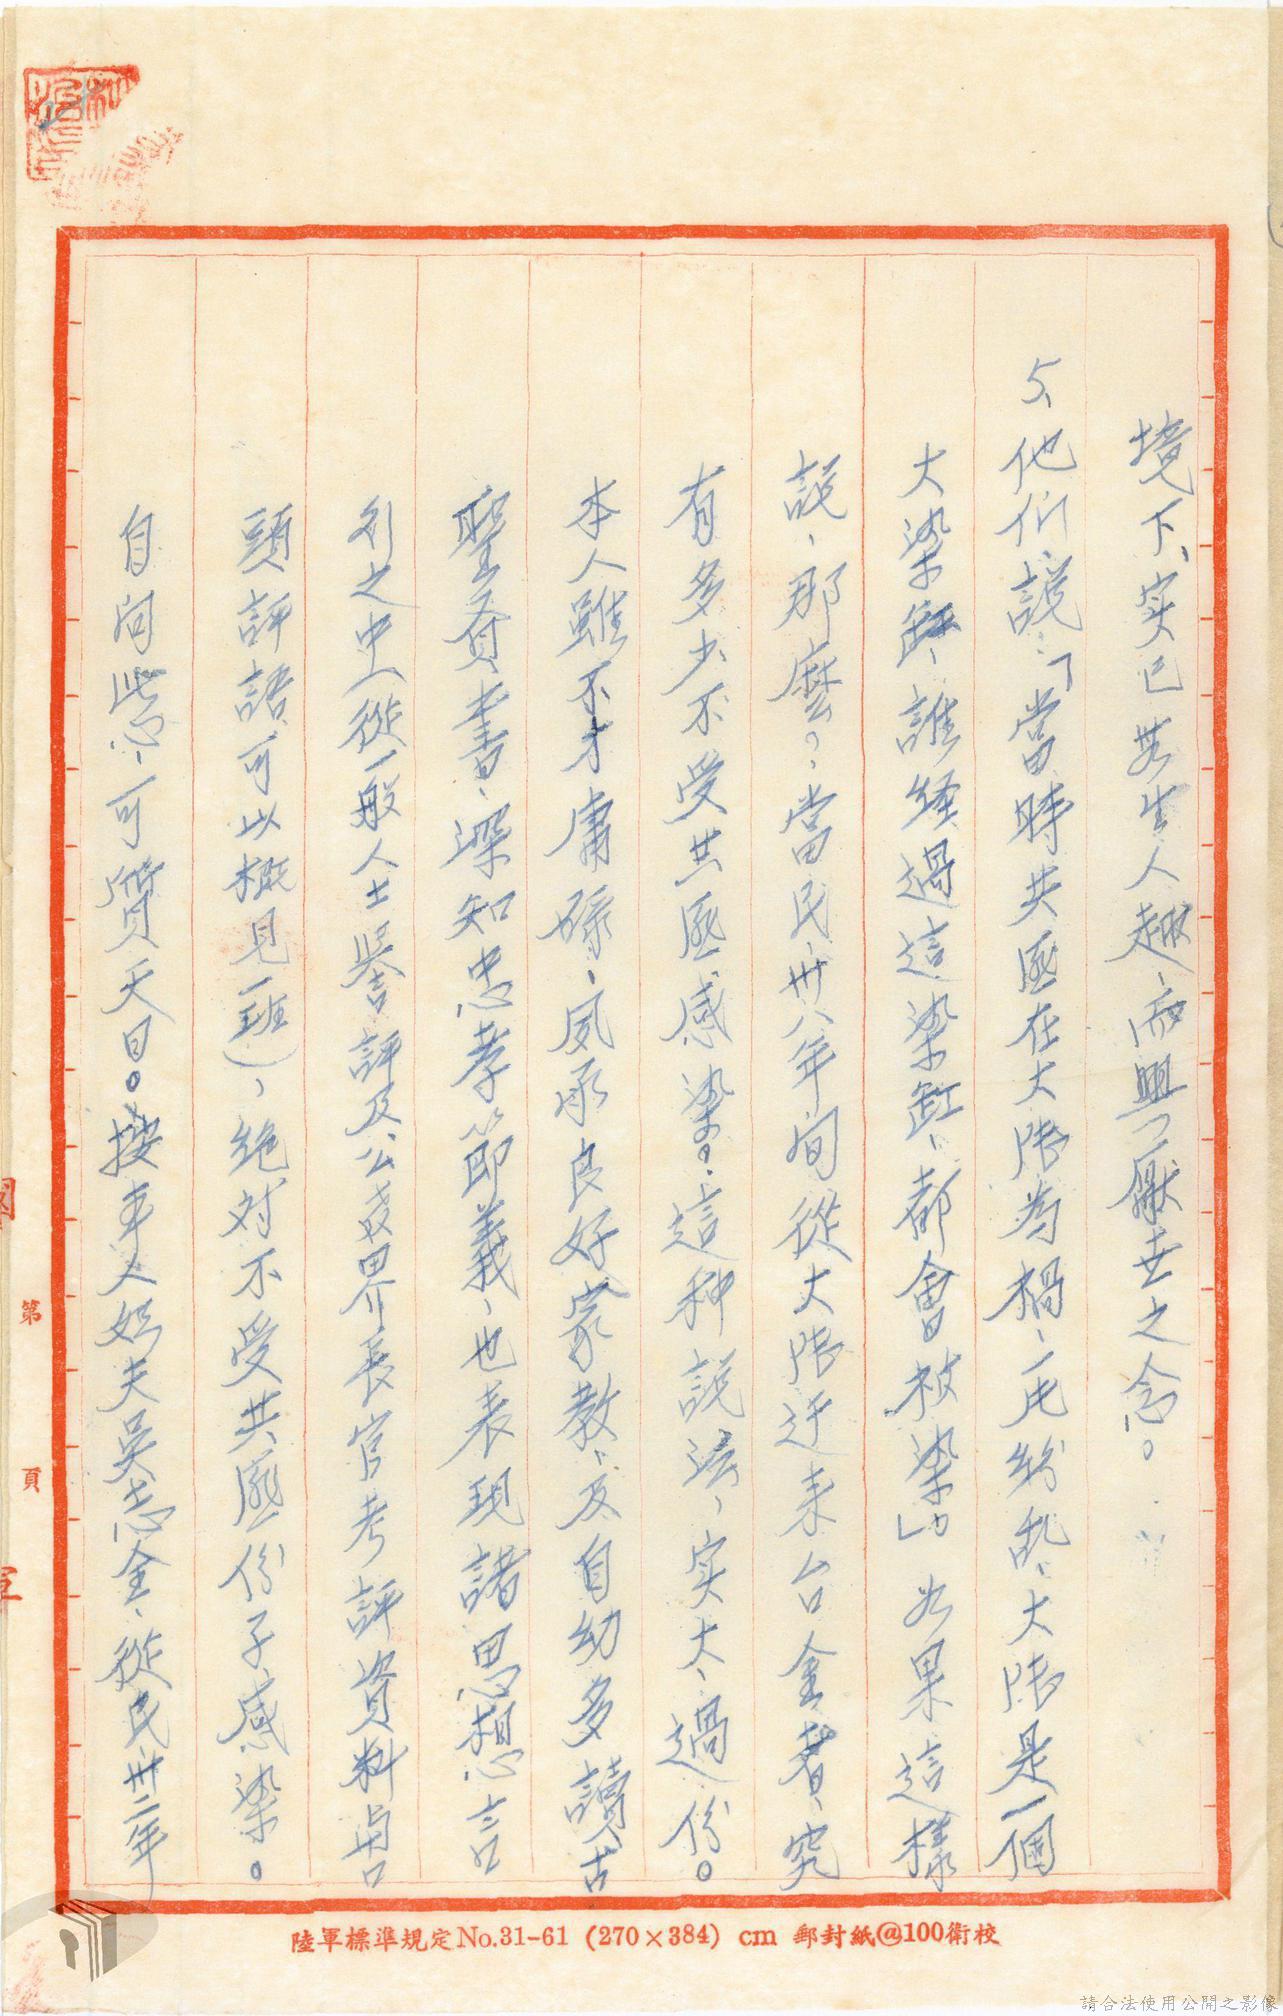 境下、实已無生人趣、而興一厭世之念。
5、他们說：「當時共匪在大陸为禍、一片紛乱、大陸是一個
大染缸、誰経過這染缸、都會被染」如果這樣
說、那麼？當民卅八年间從大陸逃来台金者、究
有多少不受共匪感染。這种說法、实大过份。
本人雖不才庸碌、夙承良好家教、及自幼多讀古
聖賢書、深知忠孝節義、也表現諸思想言
行之中（從一般人士譽評及公教界長官考評資料与口
頭評語可以概見一班）、絶对不受共匪份子感染。
自问此心、可質天日。按本人姊夫吳志金、從民卅二年
第 頁
陸軍標準規定No.31-61 (270×384) cm 郵封紙@100衛校
請合法使用公開之影像